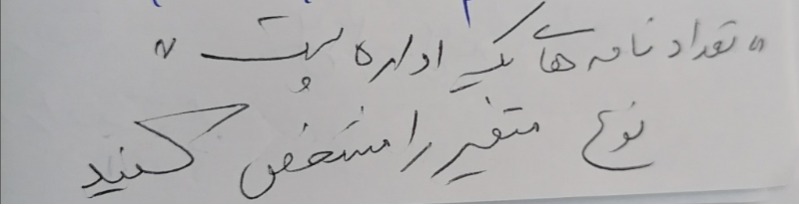 « تعداد نامه های یک اداره پست »
نوع متغیر را مشخص کنید